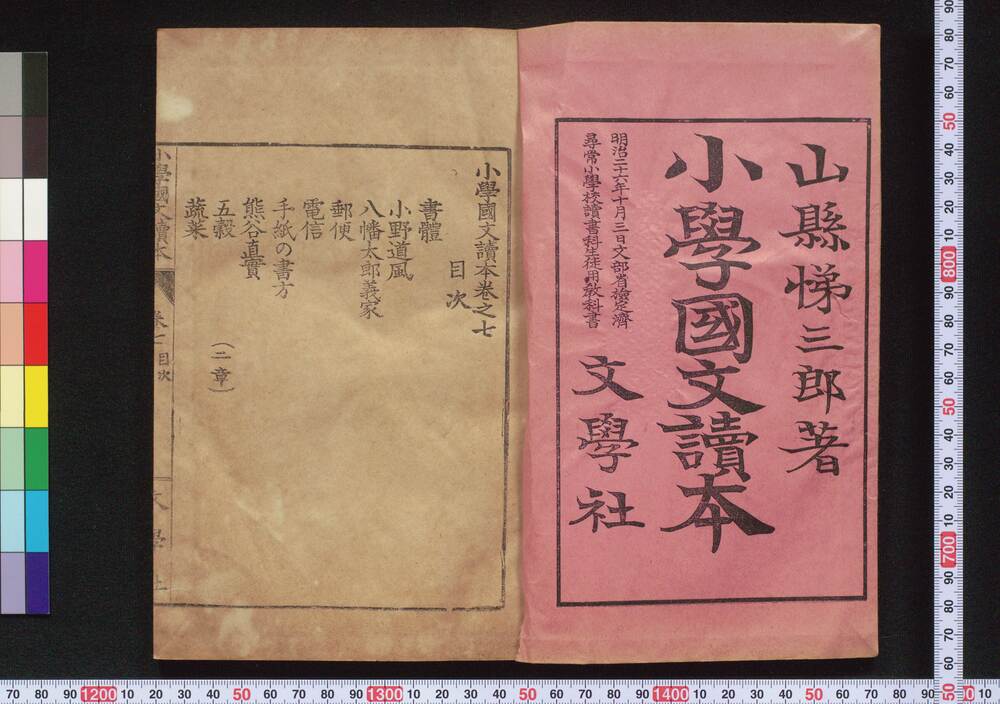 山縣悌三郎著
小學國文讀本
明治二十六年十月三日文部省檢定濟
尋常小學校讀書科生徒用教科書
文學社
小學國文讀本卷之七
目次
書體
小野道風
八幡太郎義家
郵便
電信
手紙の書方
熊谷直實
五穀
(二章)
蔬菜
小學國文讀本
目次
70 80 90 1200 10 20 30 40 50 60 70 80 90 1300 10 20 30 40 50 60 70 80 90 1400 10 20 30 40 50 60 70 80 90
90 80 70 60 50 40 30 20 10 800 90 80 70 60 50 40 30 20 10 700 90 80 70 60 50